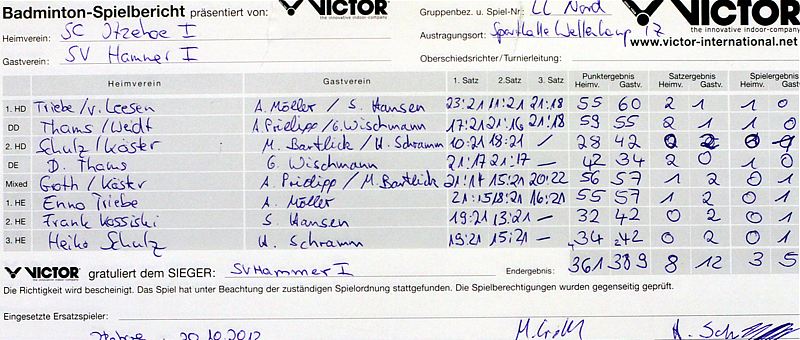 Badminton-Spielbericht präsentiert von: VICTOR the innovative indoor-company Gruppenbez. u. Spiel-Nr: LL Nord VICTOR the innovative indoor-company
Heimverein: SC Itzehoe I Austragungsort: Sporthalle Wellenkamp 17
Gastverein: SV Hammer I www.victor-international.net
Oberschiedsrichter/Turnierleitung:
Heimverein Gastverein 1. Satz 2. Satz 3. Satz Punktergebnis Heimv. Gastv. Satzergebnis Heimv. Gastv. Spielergebnis Heimv. Gastv.
1. HD Triebe/v. Leesen A. Möller / S. Hansen 23:21 11:21 21:18 55 60 2 1 1 0
DD Thams/Weidt A. Pridipp/G. Wischmann 17:21 21:16 21:18 59 55 2 1 1 0
2. HD Schulz/Köster M. Bartlick / H. Schramm 10:21 18:21 / 28 42 0 2 0
DE D. Thams G. Wischmann 21:17 21:17 — 42 34 2 0 1 0
Mixed Groth/Köster A. Pridipp / M. Bartlick 21:14 15:21 20:22 56 57 1 2 0 1
1. HE Enno Triebe A. Möller 21:15 18:21 16:21 55 57 1 2 0 1
2. HE Frank Kossiski S. Hansen 19:21 13:21 — 32 42 0 2 0 1
3. HE Heiko Schulz H. Schramm 19:21 15:21 — 34 42 0 2 0 1
VICTOR gratuliert dem SIEGER: SV Hammer I Endergebnis: 361 389 8 12 3 5
Die Richtigkeit wird bescheinigt. Das Spiel hat unter Beachtung der zuständigen Spielordnung stattgefunden. Die Spielberechtigungen wurden gegenseitig geprüft.
Eingesetzte Ersatzspieler:
20.10.2012